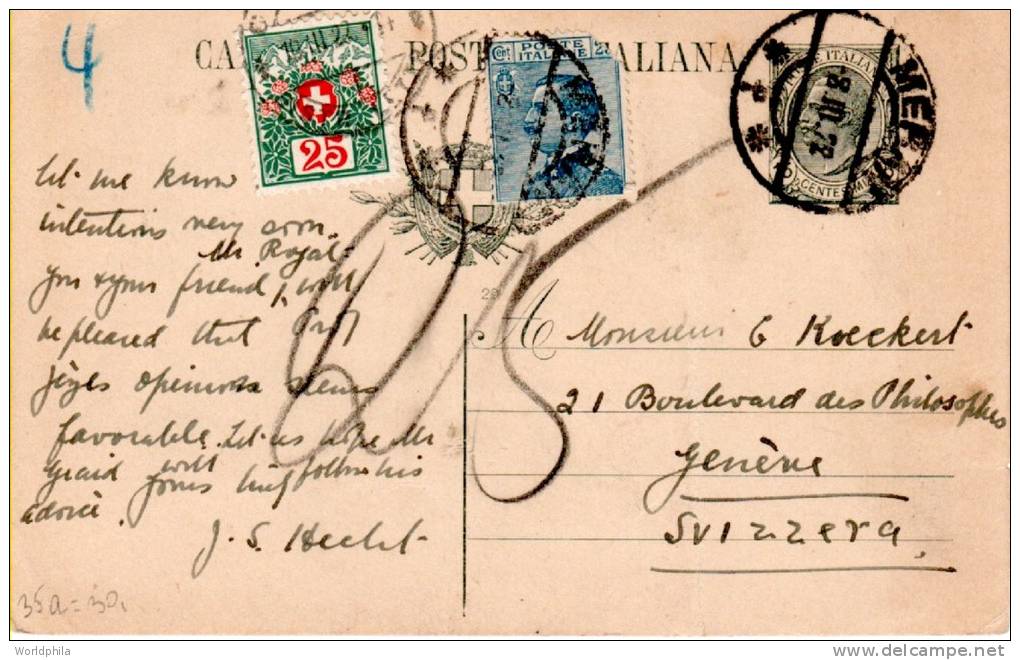 4
CARTOLINA POSTALE ITALIANA
25
POSTE ITALIANE
Cent
CENTESIMI
-8.III.22
25
Let me know
intentions very soon.
Mr. Royal
you & your friend, will
be pleased that Prof
opinions seems
favorable. Let us hope Mr
will
yours follow his
advice.
J. S. Hecht
28
A Monsieur G Koeckert
21 Boulevard des Philosophes
Genève
Svizzera.
35a = 30,
Worldphila
delcampe.net